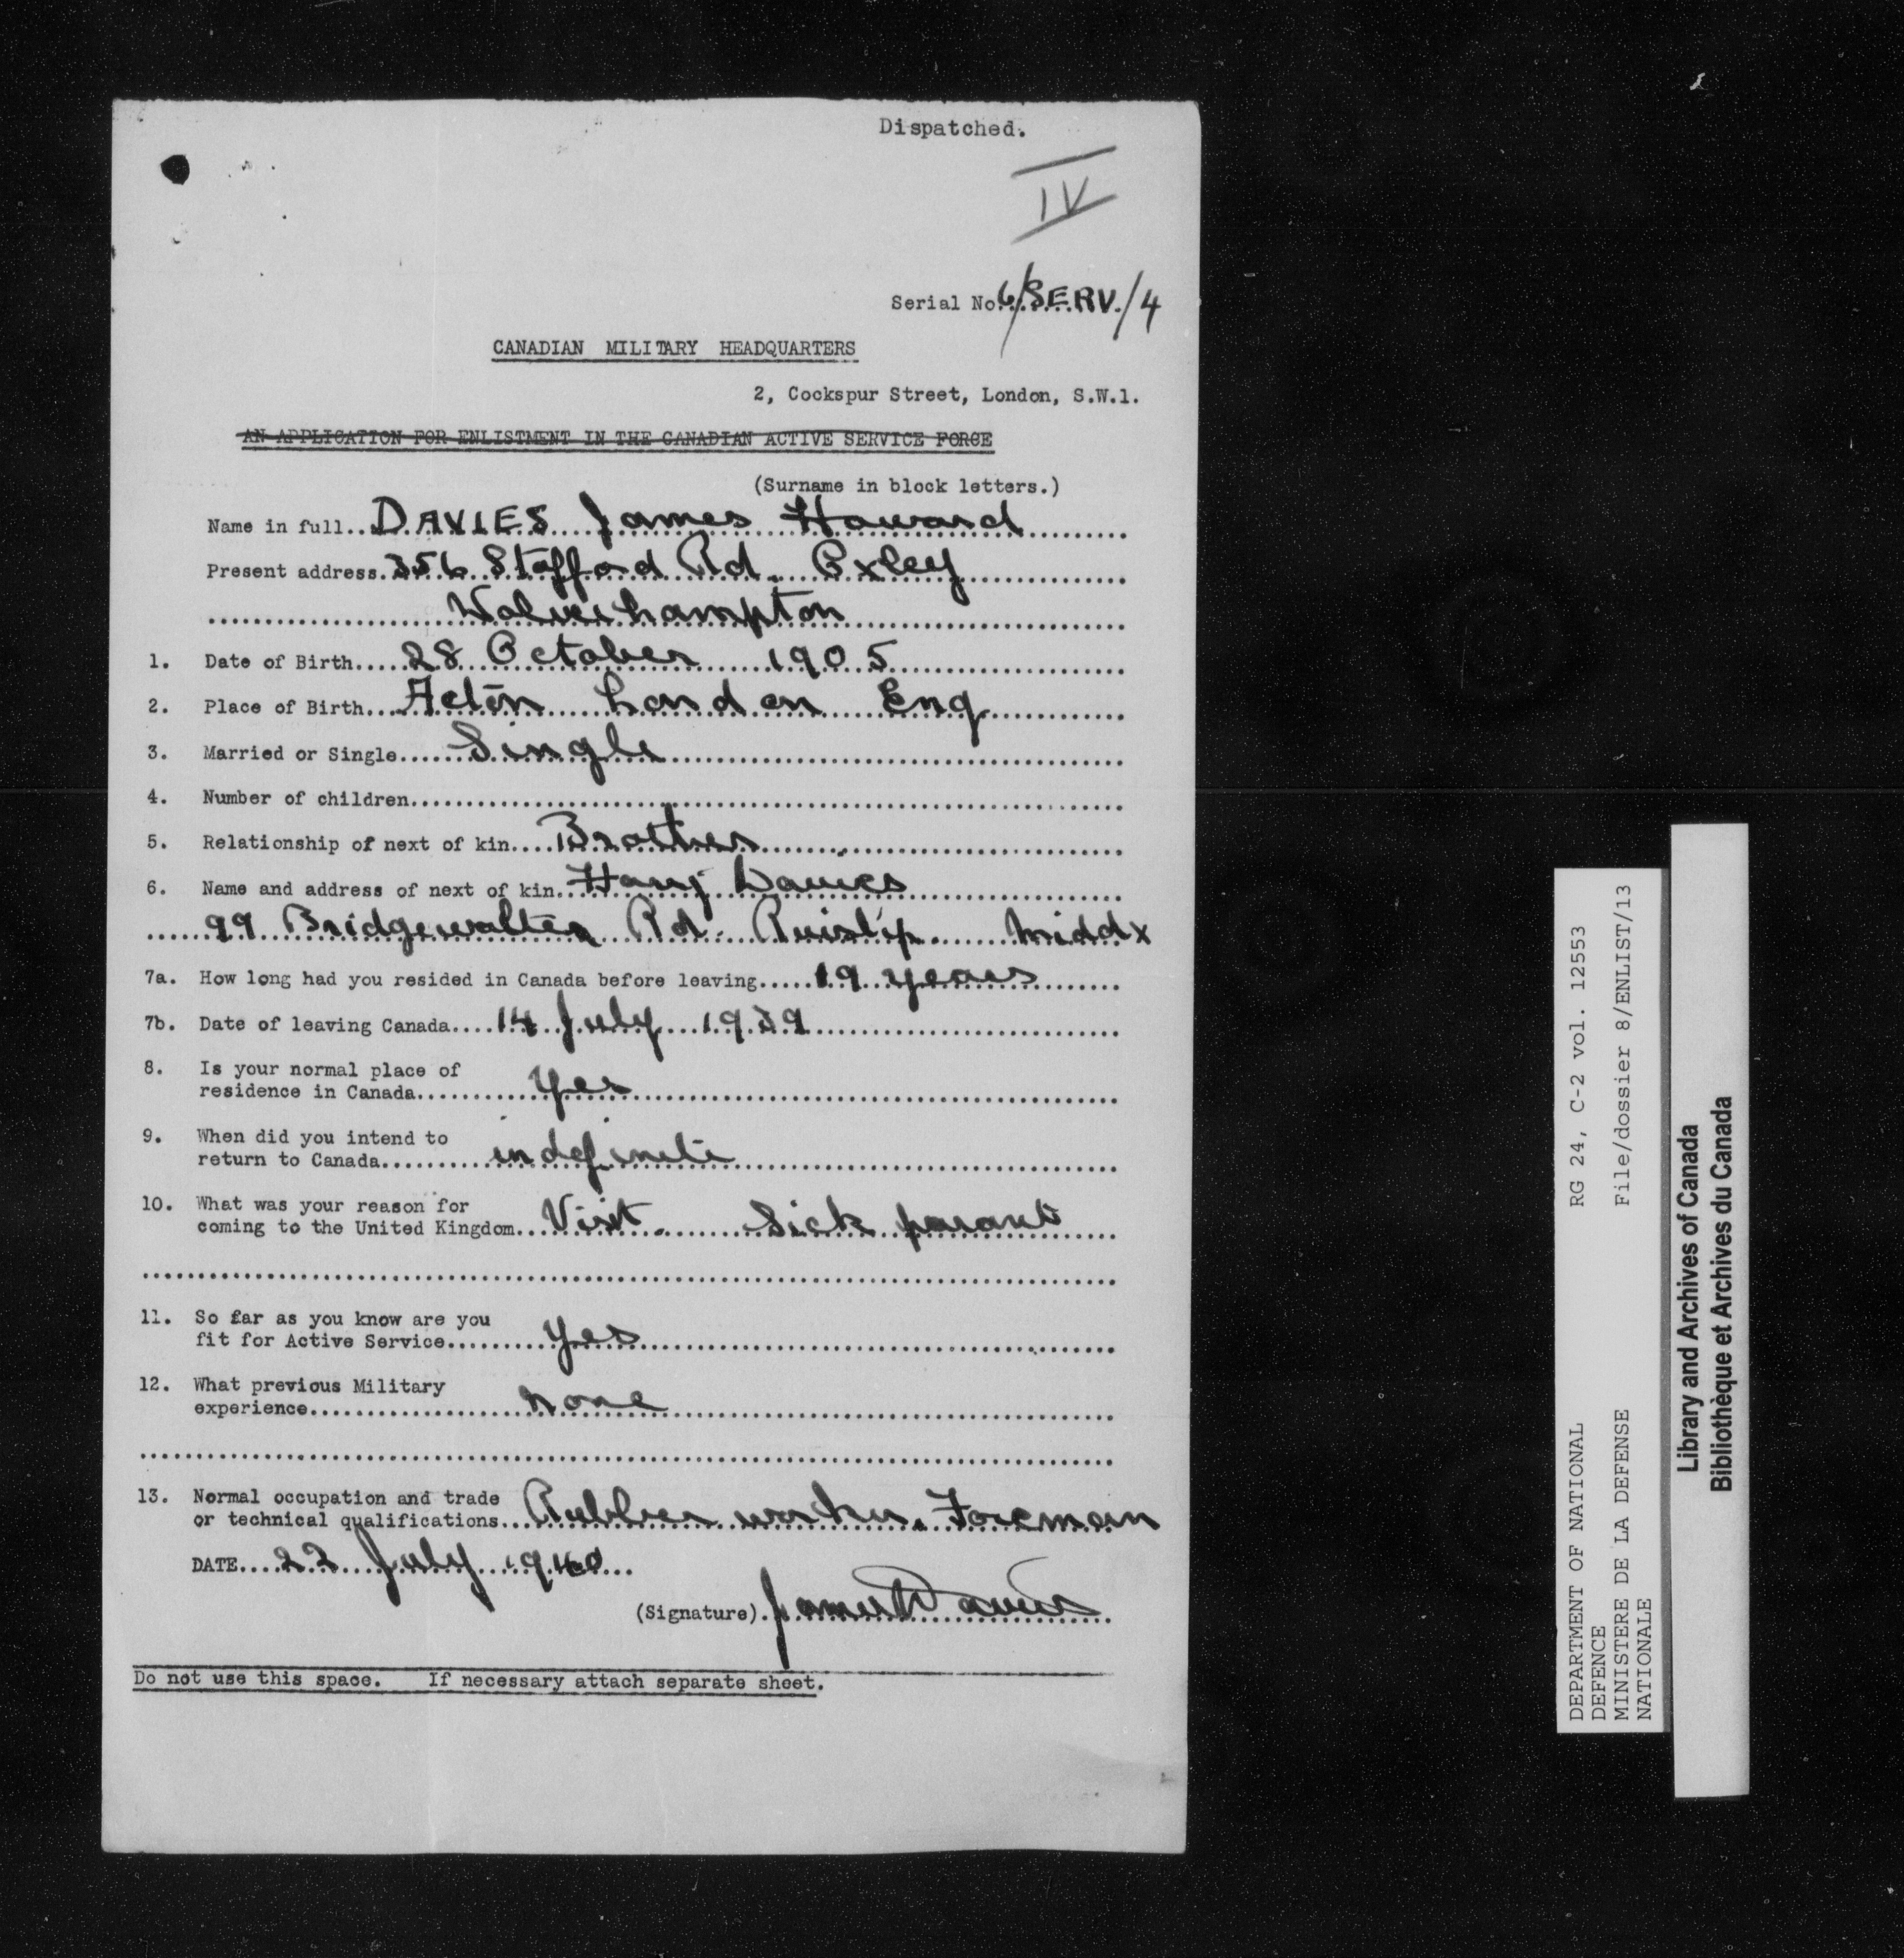 Dispatched.
IV
Serial No. 6/SERV./4
CANADIAN MILITARY HEADQUARTERS
2, Cockspur Street, London, S.W.1.
AN APPLICATION FOR ENLISTMENT IN THE CANADIAN ACTIVE SERVICE FORCE
(Surname in block letters.)
Name in full...DAVIES James Howard
Present address.356 Stafford Rd. Oxley
Wolverhampton
1. Date of Birth....28 October 1905
2. Place of Birth...Acton London Eng
3. Married or Single....Single
4. Number of children
5. Relationship of next of kin....Brother
6. Name and address of next of kin..Harry Davies
99 Bridgewatter Rd. Ruislip. Middx
7a. How long had you resided in Canada before leaving.....19 years
7b. Date of leaving Canada....14 July 1939
8. Is your normal place of
residence in Canada....yes
9. When did you intend to
return to Canada....indefinite
10. What was your reason for
coming to the United Kingdom...Visit. Sick parant
11. So far as you know are you
fit for Active Service....yes
12. What previous Military
experience....none
13. Normal occupation and trade
or technical qualifications...Rubber worker. Foreman
DATE....22 July 1940...
(Signature).James H Davies
Do not use this space. If necessary attach separate sheet.
DEPARTMENT OF NATIONAL RG 24, C-2 vol. 12553
DEFENCE
MINISTERE DE LA DEFENSE File/dossier 8/ENLIST/13
NATIONALE
Library and Archives of Canada
Bibliothèque et Archives du Canada